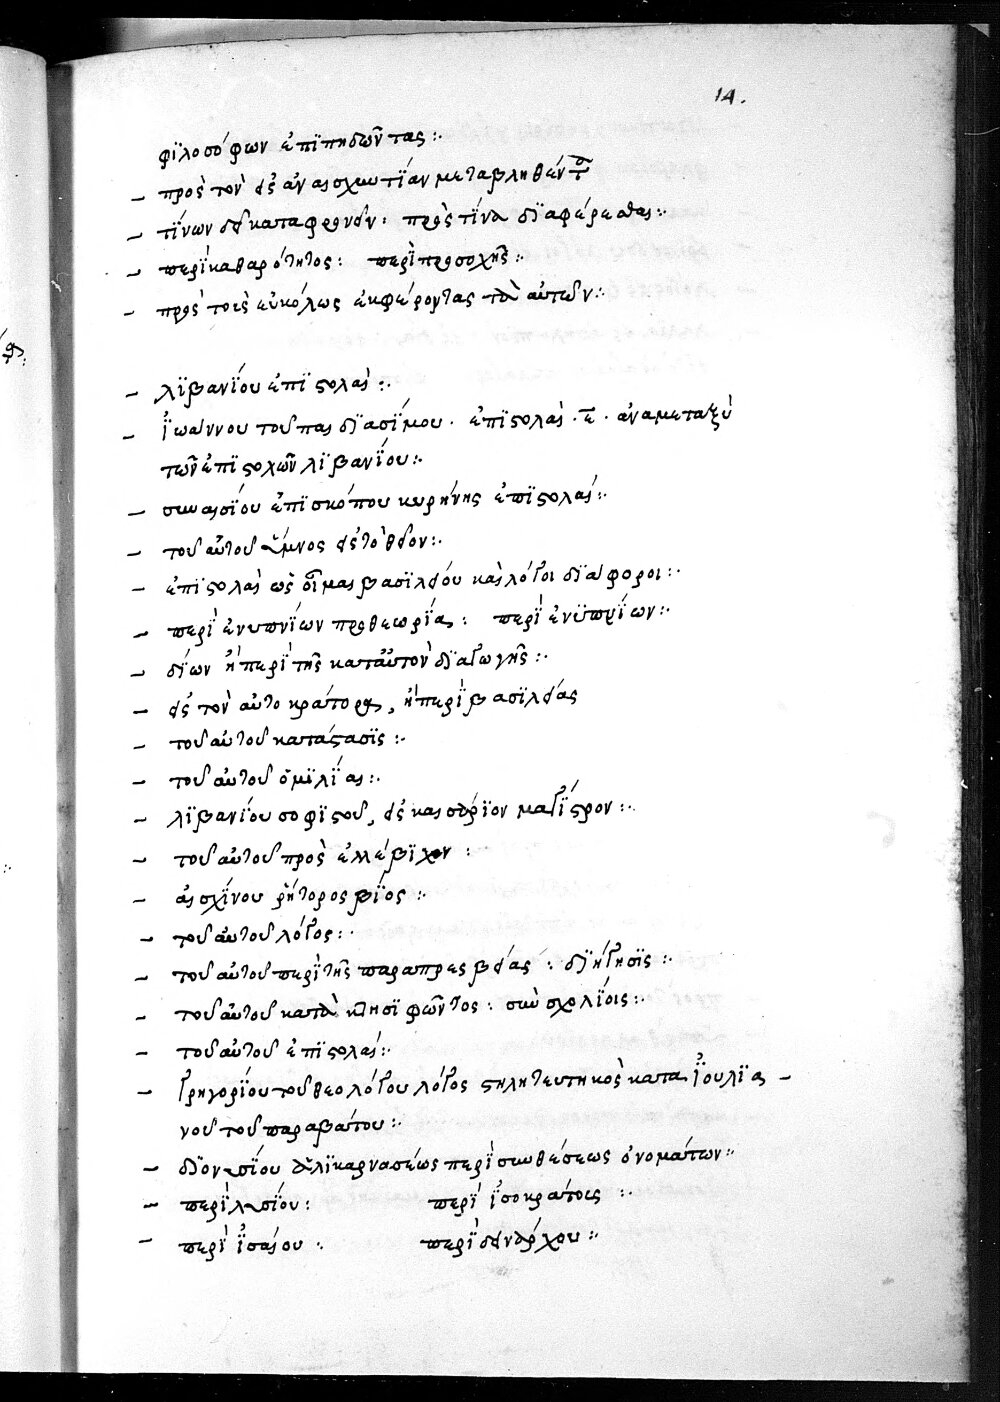 14.
φϊλοσόφων ἐπϊπηδῶντας :·
– πρὸς τὸν εἰς ἀναισχυντΐαν μεταβληθέντα
– τΐνων δεῖ καταφρονεῖν · πρὸς τΐνα δϊαφέρεσθαι :·
– περὶ καθαρότητος : περὶ προσοχῆς :·
– πρὸς τοὺς εὐκόλως ἐκφέροντας τὰ αὐτῶν :·
– λϊβανΐου ἐπϊστολαὶ :·
– ἰωάννου τοῦ πασδϊασΐμου · ἐπϊστολαὶ · ε · ἀναμεταξὺ
τῶν ἐπϊστολῶν λϊβανΐου :·
– συνεσΐου ἐπϊσκόπου κυρήνης ἐπϊστολαί :·
– τοῦ αὐτοῦ ὕμνος εἰς τὸ θεῖον :·
– ἐπϊστολαὶ ὡς οἶμαι βασϊλείου καὶ λόγοι δϊάφοροι :·
– περὶ ἐνυπνΐων προθεωρΐα : περὶ ἐνϋπνΐων :·
– δΐων ἢ περὶ τῆς κατ' αὐτὸν δϊαγωγῆς :·
– εἰς τὸν αὐτοκράτορα, ἢ περὶ βασϊλείας
– τοῦ αὐτοῦ κατάστασϊς :·
– τοῦ αὐτοῦ ὁμϊλΐαι :·
– λϊβανΐου σοφϊστοῦ, εἰς καισάρϊον μαγΐστρον :·
– τοῦ αὐτοῦ πρὸς ἐλλέβϊχον :
– αἰσχΐνου ῥήτορος βΐος :·
– τοῦ αὐτοῦ λόγος :·
– τοῦ αὐτοῦ περὶ τῆς παραπρεσβείας : δϊήγησϊς :·
– τοῦ αὐτοῦ κατὰ κτησϊφῶντος : σὺν σχολΐοις :·
– τοῦ αὐτοῦ ἐπϊστολαί :·
– γρηγορΐου τοῦ θεολόγου λόγος στηλητευτηκὸς κατα ἰουλϊα –
νοῦ τοῦ παραβάτου :·
– δϊονυσΐου ἁλϊκαρνασέως περὶ συνθέσεως ὀνομάτων :·
– περὶ λυσΐου : περὶ ἰσοκράτους :·
– περὶ ἰσαίου :· περὶ δεινάρχου :·